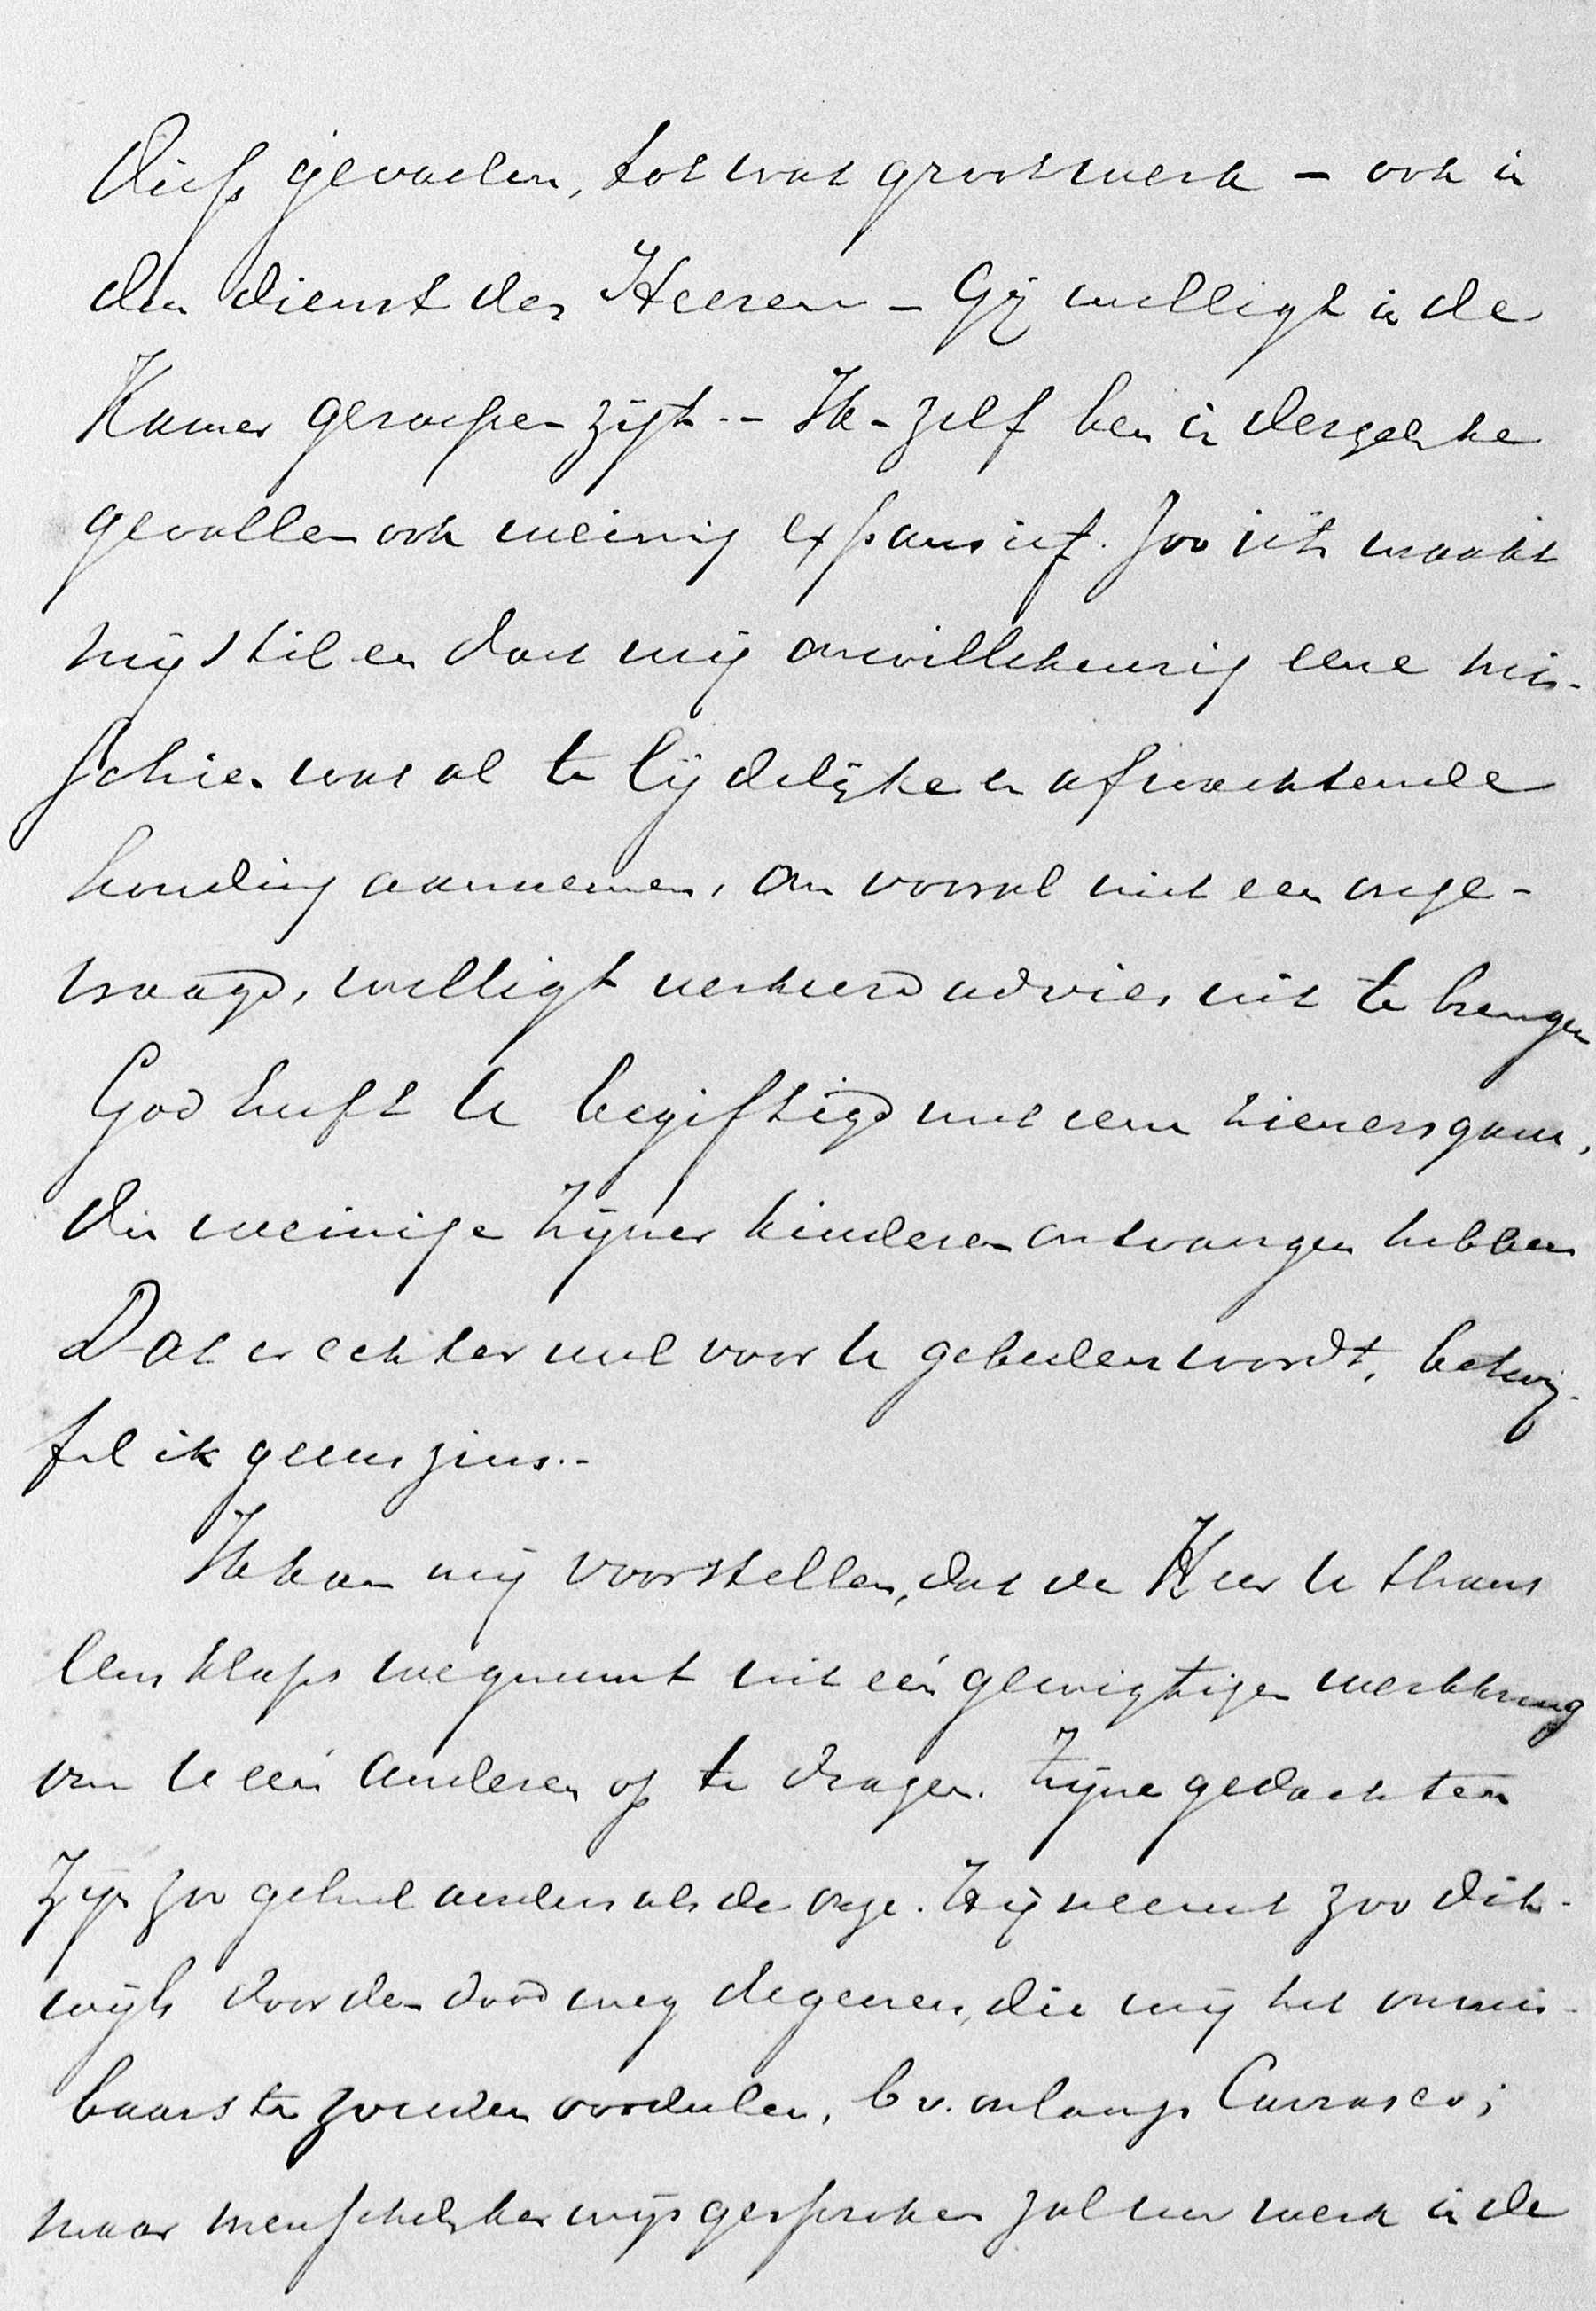 diep gevoelen, tot wat groot werk – ook in
den dienst des Heeren – Gij welligt in de
Kamer geroepen zijt. – Ik-zelf ben in dergelijke
gevallen ook weinig expansief. Zoo iets maakt
mij stil en doet mij onwillekeurig eene mis-
schien wat al te lijdelijke en afwachtende
houding aannemen, om vooral niet een onge-
vraagd, welligt verkeerd advies uit te brengen
God heeft U begiftigd met eene zienersgave,
die weinige Zijner kinderen ontvangen hebben
Dat er echter veel voor U gebeden wordt, betwij-
fel ik geenszins. –
Ik kan mij voorstellen, dat de Heer U thans
eensklaps wegneemt uit één gewigtigen werkkring
om U één anderen op te dragen. Zijne gedachten
zijn zoo geheel anders als de onze. Hij neemt zoo dik-
wijls door den dood weg degenen, die wij het onmis-
baarst zouden oordeelen, bv. onlangs Carrasco;
maar menschelijker wijs gesproken zal uw werk in de